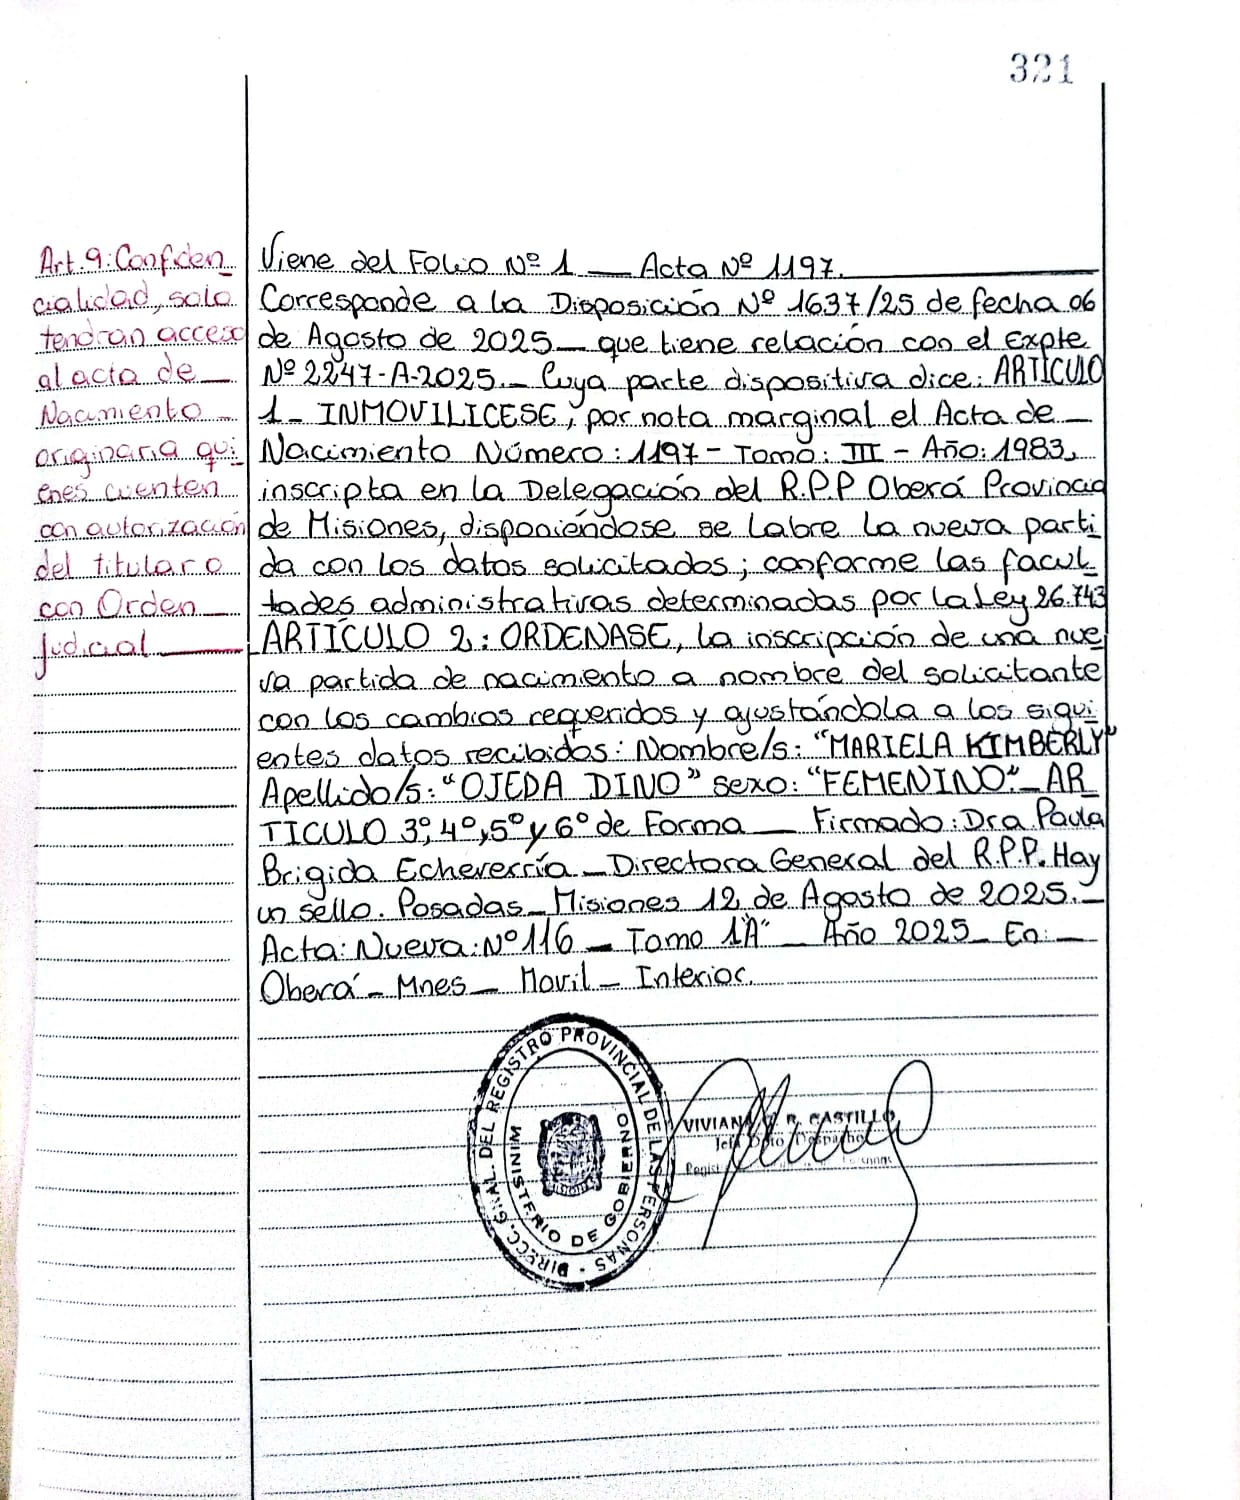 321
Art.9: Confiden
cialidad, solo
tendran acceso
al acta de
Nacimiento
originaria qui
enes cuenten
con autorización
del titular o
con Orden
Judicial
Viene del Folio Nº 1 — Acta Nº 1197.
Corresponde a la Disposición Nº 1637/25 de fecha 06
de Agosto de 2025 — que tiene relación con el Expte
Nº 2247-A-2025.- Cuya parte dispositiva dice: ARTICULO
1- INMOVILICESE, por nota marginal el Acta de
Nacimiento Número: 1197 - Tomo: III - Año: 1983,
inscripta en la Delegación del R.P.P Oberá Provincia
de Misiones, disponiéndose se labre la nueva parti
da con los datos solicitados; conforme las facul
tades administrativas determinadas por la Ley 26.743
ARTÍCULO 2: ORDENASE, la inscripción de una nue
va partida de nacimiento a nombre del solicitante
con los cambios requeridos y ajustándola a los sigui
entes datos recibidos: Nombre/s: "MARIELA KIMBERLY"
Apellido/s: "OJEDA DINO" sexo: "FEMENINO".- AR
TICULO 3º, 4º, 5º y 6º de Forma — Firmado: Dra. Paula
Brigida Echeverría - Directora General del R.P.P. Hay
un sello. Posadas - Misiones 12 de Agosto de 2025.-
Acta: Nueva: Nº 116 - Tomo 1"A" - Año 2025 - En: —
Oberá - Mnes - Movil - Interior.
DIRECC. GRAL. DEL REGISTRO PROVINCIAL DE LAS PERSONAS -
MINISTERIO DE GOBIERNO
VIVIANA R. CASTILLO
Despacho